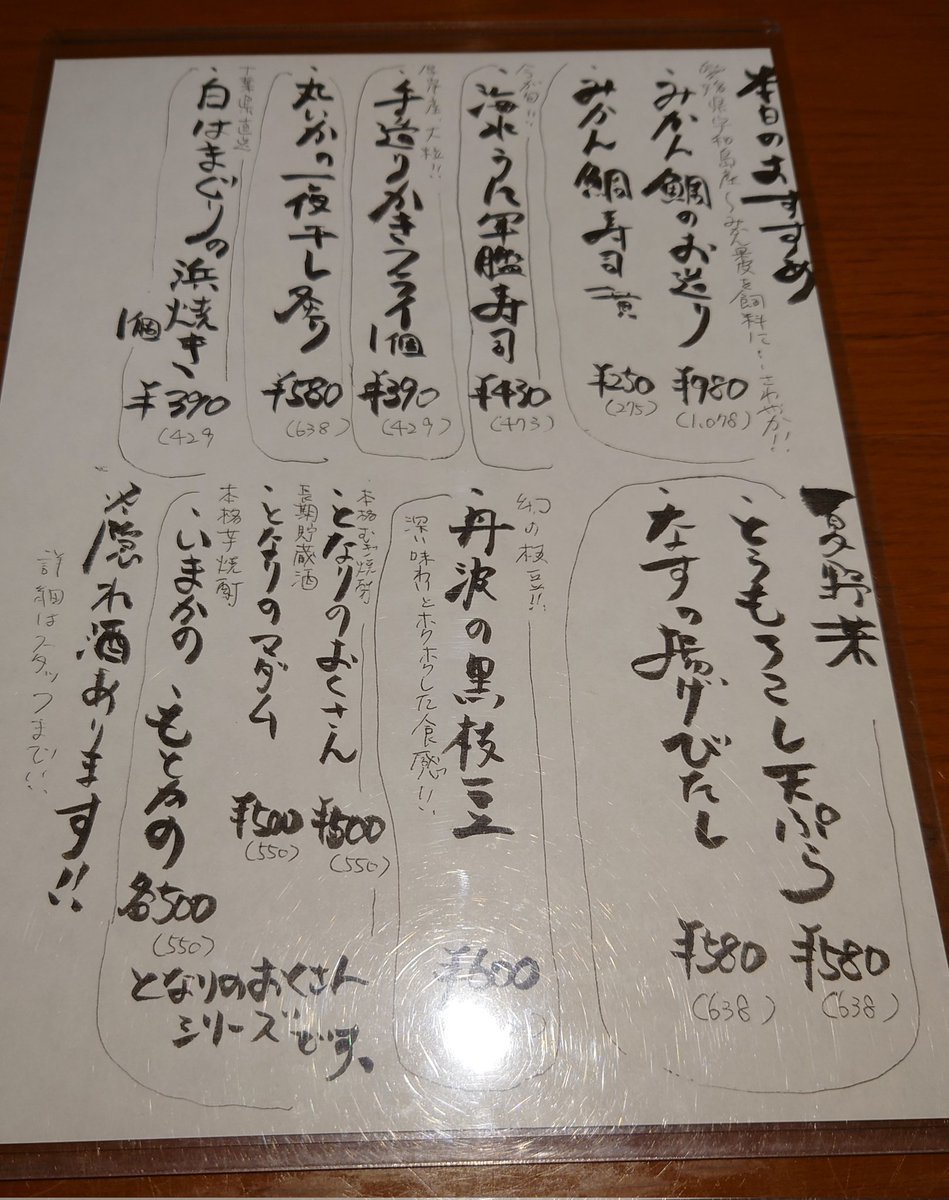 本日のおすすめ
愛媛県宇和島産〜みかん果皮を飼料に…さわやか!!
・みかん鯛のお造り ¥980 (1,078)
みかん鯛寿司 一貫 ¥250 (275)
今が旬!!
・海水うに軍艦寿司 ¥430 (473)
大粒!!
・手造りかきフライ 1個 ¥390 (429)
・丸いかの一夜干し炙り ¥580 (638)
千葉県直送
・白はまぐりの浜焼き 1個 ¥390 (429
夏野菜
とうもろこし天ぷら ¥580 (638)
なすの揚げびたし ¥580 (638)
幻の枝豆!!
・丹波の黒枝豆 ¥600
深い味わとホクホクした食感!!
本格むぎ焼酎
・となりのおくさん ¥500 (550)
長期貯蔵酒
・となりのマダム ¥500 (550)
本格芋焼酎
・いまかの もとかの 各500 (550)
となりのおくさん
シリーズです、
※隠れ酒あります!!
詳細はスタッフまで!!